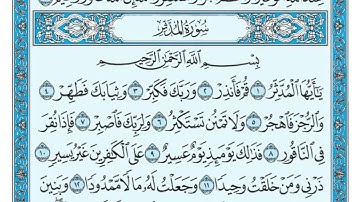 سُورَةُ المُدَّثِّر
بِسْمِ ٱللَّهِ ٱلرَّحْمَٰنِ ٱلرَّحِيمِ
يَٰٓأَيُّهَا ٱلْمُدَّثِّرُ ١ قُمْ فَأَنذِرْ ٢ وَرَبَّكَ فَكَبِّرْ ٣ وَثِيَابَكَ فَطَهِّرْ ٤
وَٱلرُّجْزَ فَٱهْجُرْ ٥ وَلَا تَمْنُن تَسْتَكْثِرُ ٦ وَلِرَبِّكَ فَٱصْبِرْ ٧ فَإِذَا نُقِرَ
فِي ٱلنَّاقُورِ ٨ فَذَٰلِكَ يَوْمَئِذٍ يَوْمٌ عَسِيرٌ ٩ عَلَى ٱلْكَٰفِرِينَ غَيْرُ يَسِيرٍ ١٠
ذَرْنِي وَمَنْ خَلَقْتُ وَحِيدًا ١١ وَجَعَلْتُ لَهُۥ مَالًا مَّمْدُودًا ١٢ وَبَنِينَ